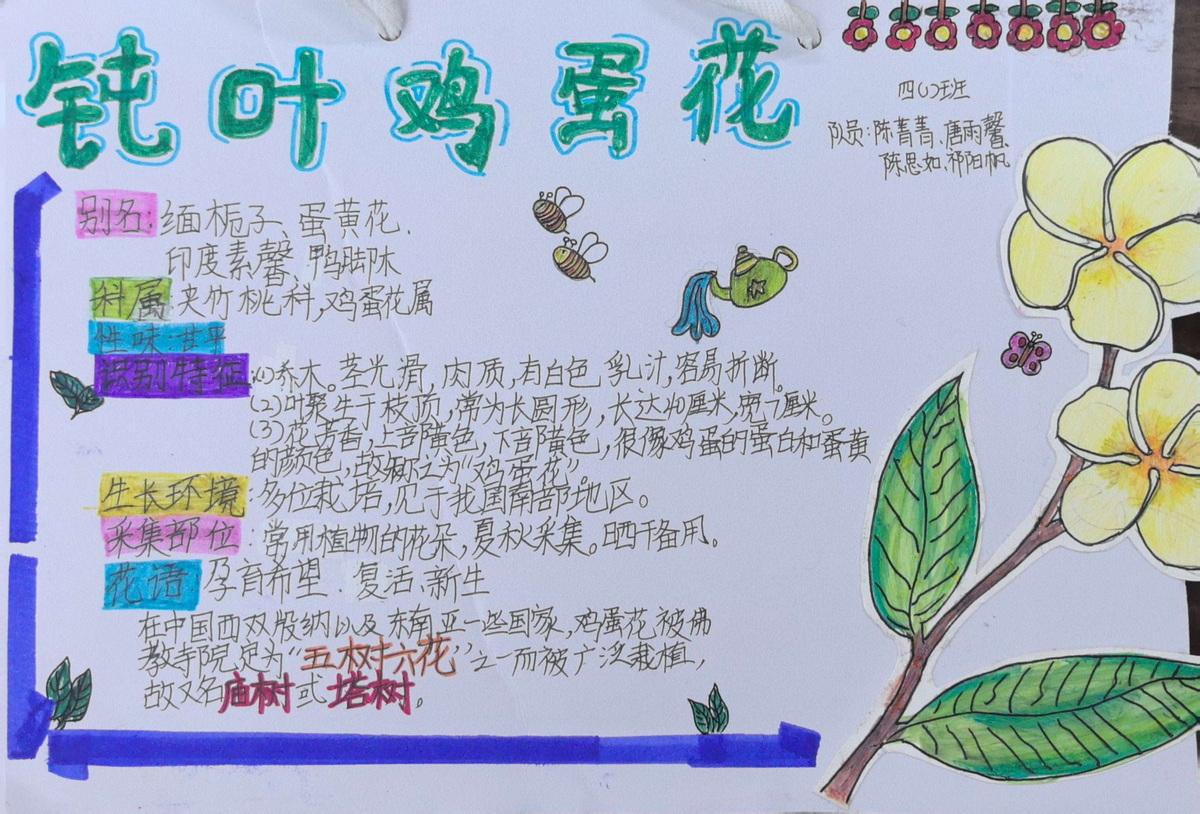 钝叶鸡蛋花
四(1)班
队员:陈菁菁、唐雨馨、
陈思如、祁阳帆
别名:缅栀子、蛋黄花、
印度素馨、鸭脚木
科属:夹竹桃科,鸡蛋花属
性味:甘平
识别特征:(1)乔木。茎光滑,肉质,有白色乳汁,容易折断。
(2)叶聚生于枝顶,常为长圆形,长达40厘米,宽7厘米。
(3)花芳香,上部黄色,下部黄色,很像鸡蛋的蛋白和蛋黄
的颜色,故称之为“鸡蛋花”。
生长环境:多位栽培,见于我国南部地区。
采集部位:常用植物的花朵,夏秋采集。晒干备用。
花语:孕育希望、复活、新生
在中国西双版纳以及东南亚一些国家,鸡蛋花被佛
教寺院定为“五树六花”之一而被广泛栽植,
故又名庙树或塔树。